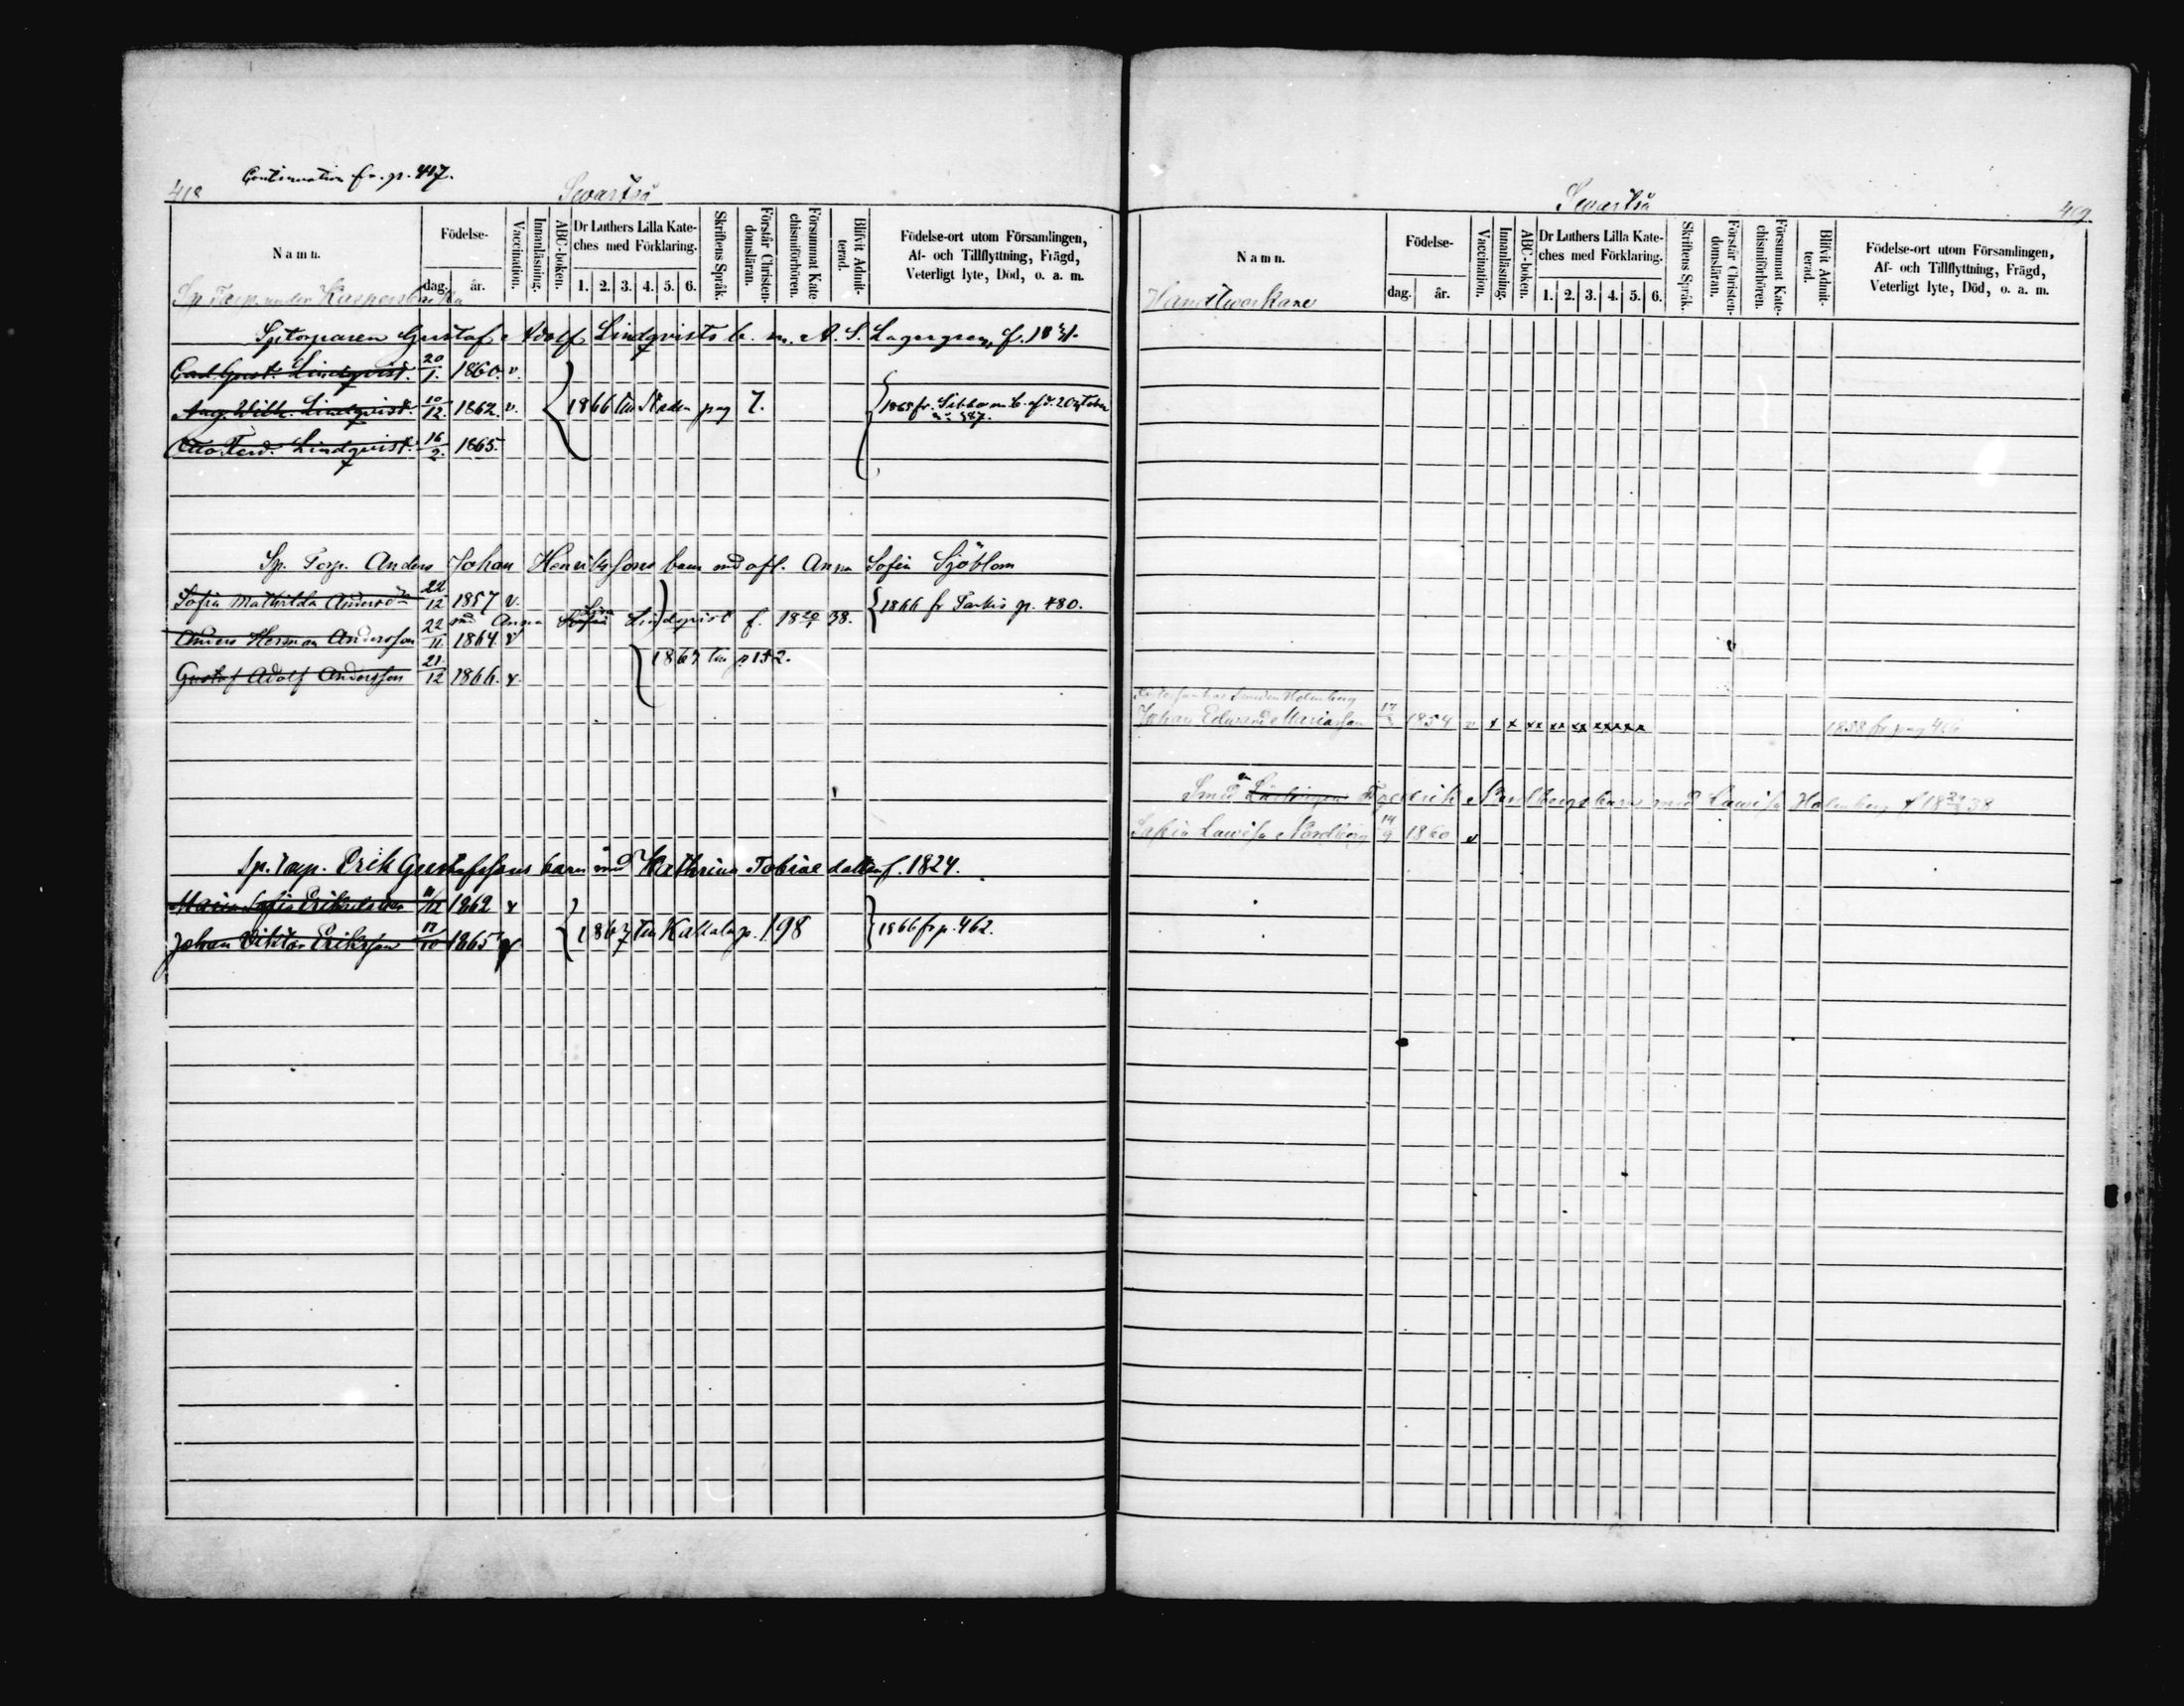 418
Continuation fr. p. 417.
Svartså
Namn.
Födelse-
dag.
år.
Vaccination.
Innanläsning.
ABC-boken.
Dr Luthers Lilla Kate-
ches med Förklaring.
1. 2. 3. 4. 5. 6.
Skriftens Språk.
Förstår Christen-
domsläran.
Försummat Kate-
chismiförhören.
Blifvit Admit-
terad.
Födelse-ort utom Församlingen,
Af- och Tillflyttning, Frägd,
Veterligt lyte, Död, o. a. m.
Sp. Torp. under
Sptorparen Gustaf Adolf Lindqvists b. m. A. S. Lagergren, f.
Carl Gust. Lindqvist. 20/1. 1860. v.
Aug. Wilh. Lindqvist. 10/12. 1862. v. 1866 till pag 7. fr. Sibbo
Otto Ferd. Lindqvist. 16/2. 1865.
Sp. Torp. Anders Johan Henrikssons barn med afl. Anna Sofia Sjöblom
Sofia Mathilda 22/12 1857 v. 1866 fr p. 480.
md Anna Lisa Lindqvist f. 38.
Anders Herman Andersson 22/11 1864. v
1867 till p 152.
Gustaf Adolf Andersson 21/12 1866. v.
Sp. torp. Erik Gustafssons barn med Kathrina Tobiae dotter f. 1824.
Maria Sofia 11/12 1862 v
Johan Viktor Eriksson 17/10 1865 v 1867 till Kallala p. 198 1866 fr p. 462.
Svartså
419.
Namn.
Födelse-
dag.
år.
Vaccination.
Innanläsning.
ABC-boken.
Dr Luthers Lilla Kate-
ches med Förklaring.
1. 2. 3. 4. 5. 6.
Skriftens Språk.
Förstår Christen-
domsläran.
Försummat Kate-
chismiförhören.
Blifvit Admit-
terad.
Födelse-ort utom Församlingen,
Af- och Tillflyttning, Frägd,
Veterligt lyte, Död, o. a. m.
Handtverkare
Smeden Holmberg
Johan Edvard Mariasson 1854 v x x xx xx xx xx xx xx 1858 fr pag
Smed Fredrik Nordbergs barn med Lovisa Holmberg f 38
Sofia Lovisa Nordberg 14/9 1860 v